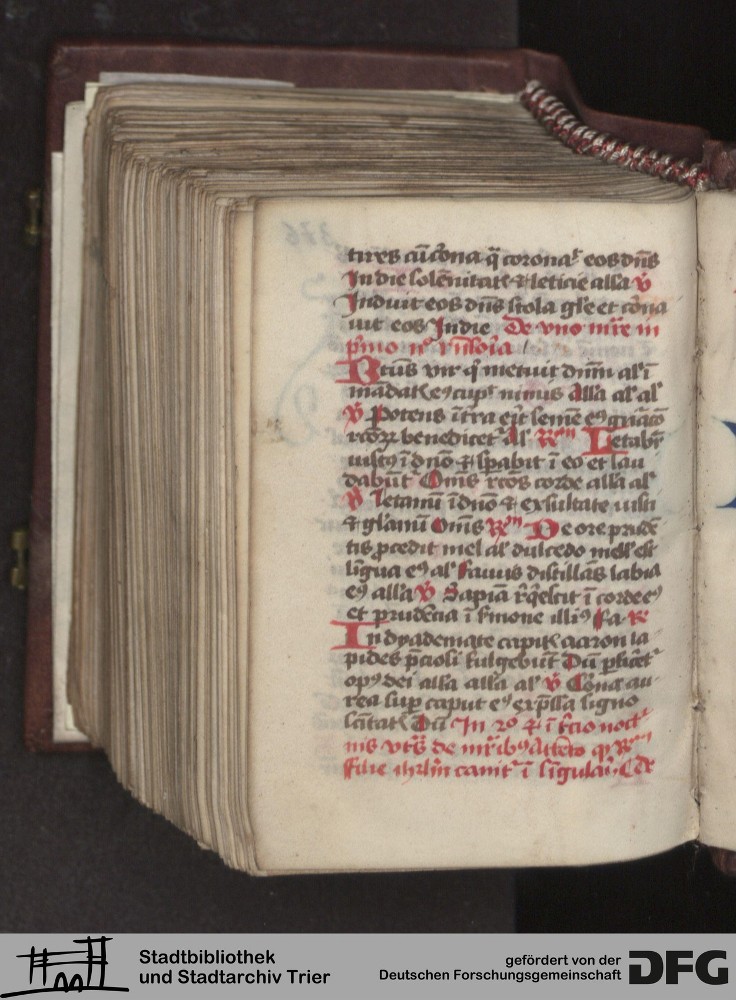 tires cū cōna q̄ coronaꝰ eos dn̄s
In die solēnitat & leticie alla v̄
Induit eos dn̄s stola gl̄e et cōna
uit eos In die De vno mr̄e in
Btūs vir q̄ metuit dnm̄ al ī
mādat eꝰ cup nimis Alla al al
v̄ Potens ī tra erit semē eꝰ
benedicet al R Letabr
iustꝰ ī dn̄o & spabit ī eo et lau
dabūt Om̄s rcōs corde alla al
v̄ Letamī ī dn̄o & exsultate iusti
& gl̄amī Om̄s R De ore prudē
tis ꝓcedit mel al dulcedo mell est
līgua eꝰ al Fauus distillās labia
eꝰ alla v̄ Sapīa rq̄escit ī corde eꝰ
et prudēcia ī s̄mone illiꝰ Fa R
In dyademate capit aaron la
pides p̄ciosi fulgebūt Dū ꝑficet
opꝰ dei alla alla al v̄ Cōna au
rea sup caput eꝰ exp̄ssa signo
sc̄itat Dū In 2o & ī t̄cio noct
nis de mr̄ibꝰ R
Filie ihrlm̄ canit ī
Stadtbibliothek
und Stadtarchiv Trier
gefördert von der
Deutschen Forschungsgemeinschaft
DFG